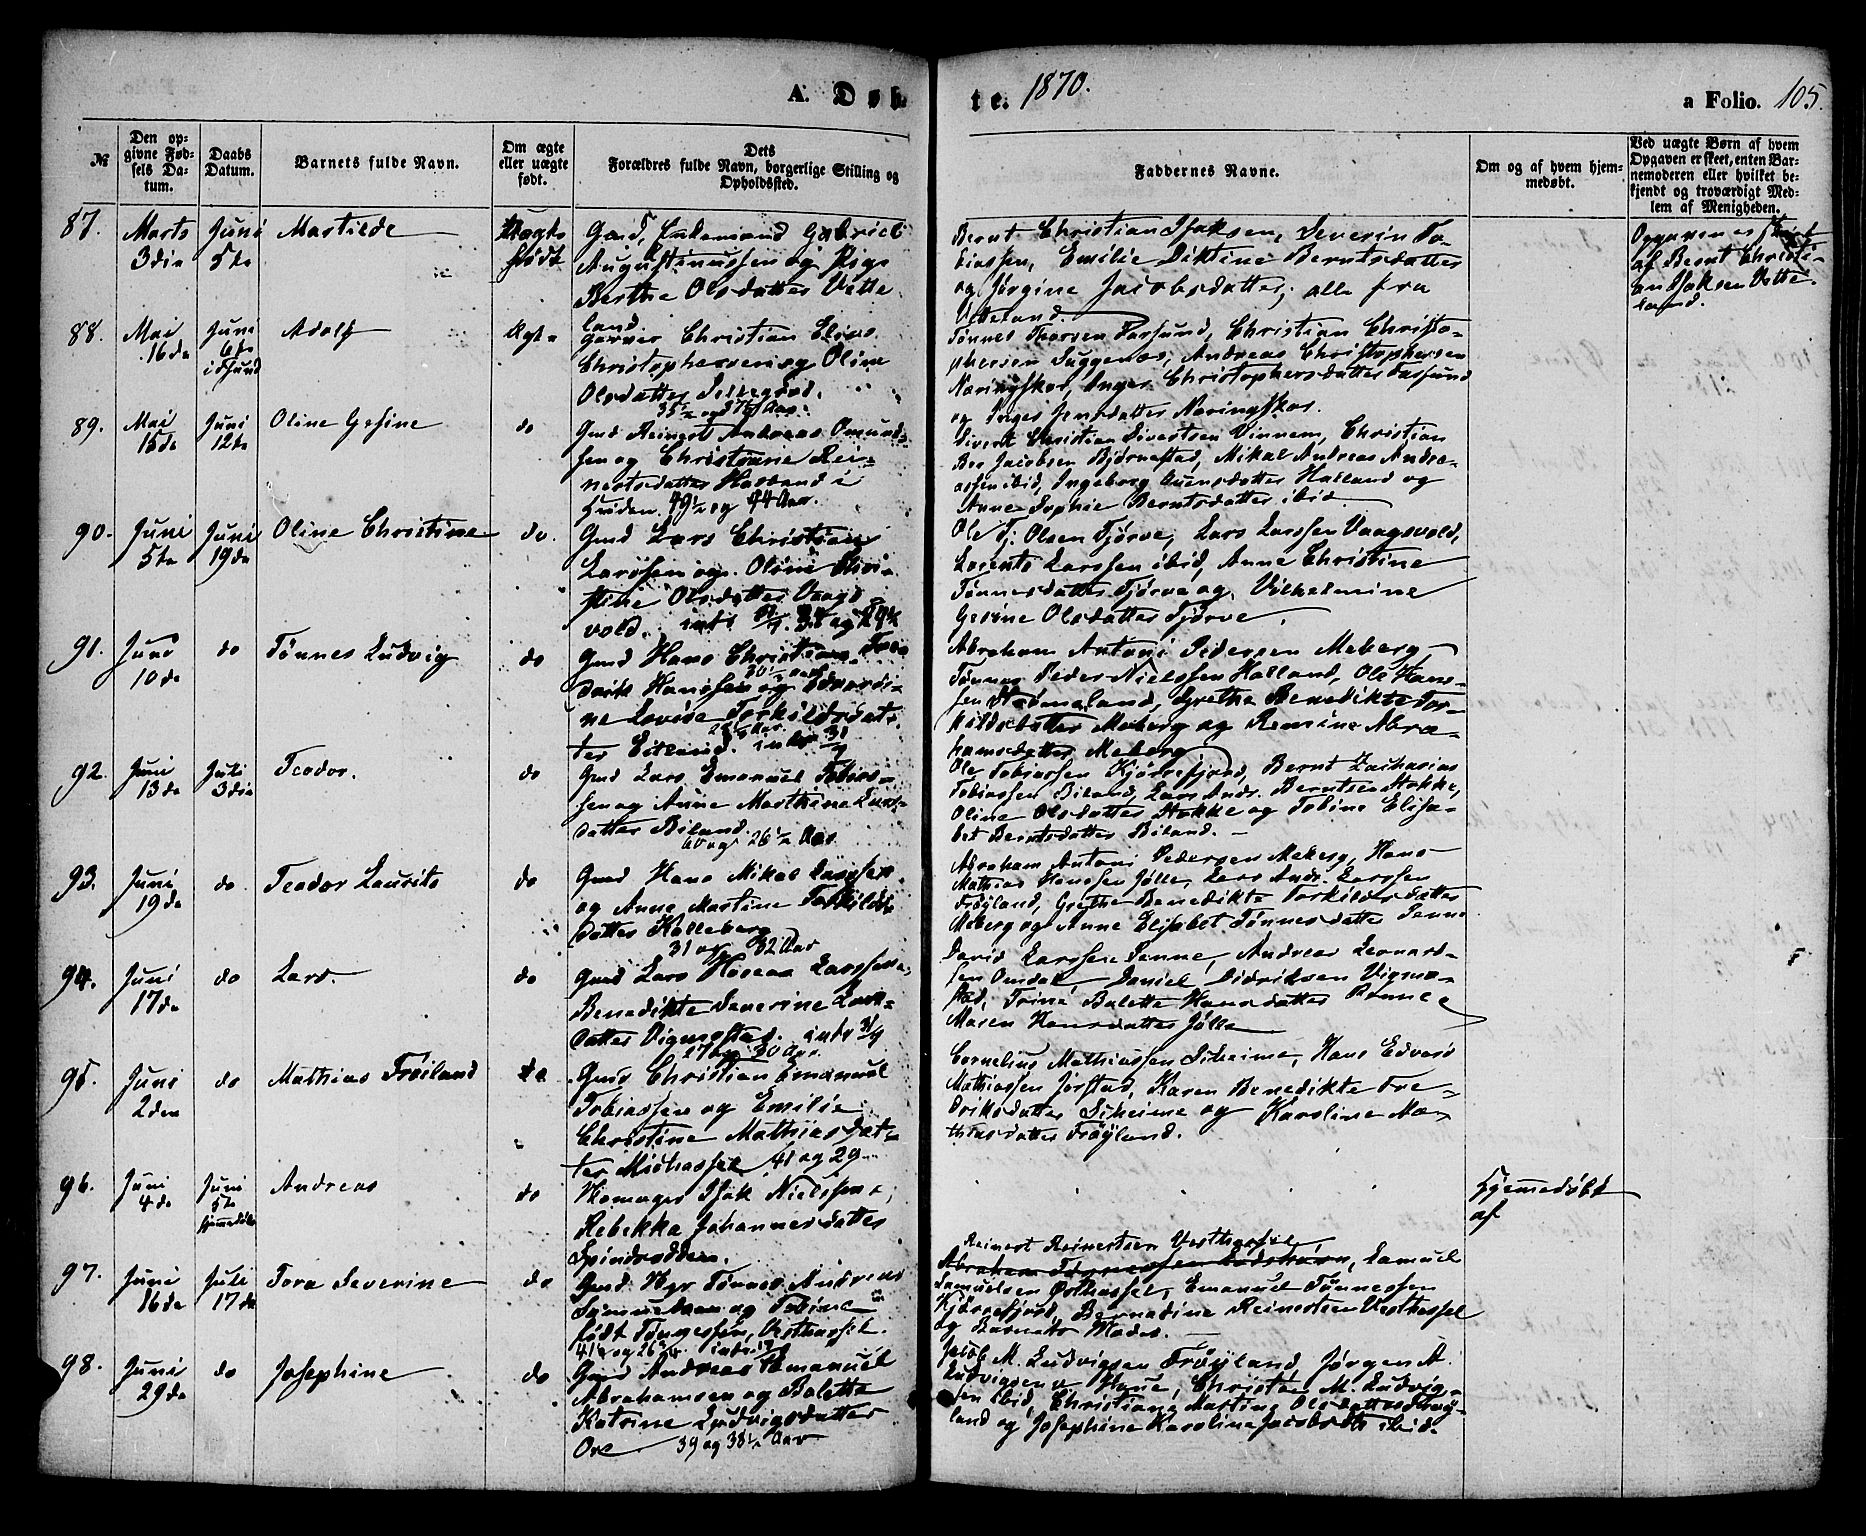 A. Døbte. 1870.
a Folio. 105.
№
Den opgivne Fødsels Datum.
Daabs Datum.
Barnets fulde Navn.
Om ægte eller uægte født.
Dets Forældres fulde Navn, borgerlige Stilling og Opholdssted.
Faddernes Navne.
Om og af hvem hjemmedøbt.
Ved uægte Børn af hvem Opgaven er skeet, enten Barnemoderen eller hvilket bekjendt og troværdigt Medlem af Menigheden.
87.
Marts
3die
Juni
5te
Mastilde
Uægte
født
Gmd, Enkemand Gabriel
Augustinussen og Pige
Berthe Olsdatter Vatte
land.
Bernt Christian Isaksen, Severin To-
biassen, Emilie Diktine Berntsdatter
og Jørgine Jacobsdatter; alle fra
Vatteland.
Opgaven er skeet
af Bernt Christi-
an Isaksen Vatte-
land.
88.
Mai
16de
Juni
6te
i Sund
Adolf
Ægte
Garver Christian Elias
Christophersen og Oline
Olsdatter
35½ og Aar.
Tønnes Farsund, Christian Christo-
phersen Andreas Christophersen
Næringskor, Inger Christophersdatter Farsund
og Inger Jensdatter Næringskor.
89.
Mai
15de
Juni
12te
Oline Gesine
do
Gmd Reinert Andreas Omund-
sen og Christiane Rei-
nertsdatter i
49½ og 44 Aar.
Sivert Christian Sivertsen Vinnem, Christian
Ber. Jacobsen Bjørnestad, Mikal Andreas Andre-
assen ibid, Ingeborg Halland og
Anne Sophie Berntsdatter ibid
90.
Juni
5te
Juni
19de
Oline Christine
do.
Gmd Lars Christian
Larssen og Oline Chri-
stine Olsdatter Vaags
vold.
Ole T. Olsen Tjørve, Lars Larssen Vaagsvold,
Lorents Larssen ibid, Anne Christine
Tønnesdatter Tjørve og Vilhelmine
Gesine Olsdatter Tjørve.
91.
Juni
10de
do
Tønnes Ludvig
do
Gmd Hans Christian Fre
derik Hanssen og Edvardi-
ne Lovise Torkildsdat-
ter Eitland.
Abraham Antoni Pedersen Meberg
Tønnes Peder Nielssen Halland, Ole Hans-
sen Grethe Benedikte Tor-
kildsdatter Meberg og Remine Abra-
hamsdatter Meberg
92.
Juni
13de
Juli
3die
Teodor.
do
Gmd Lars Emanuel Tobias-
sen og Anne Marthine Lars-
datter Biland.
60 og 26½ Aar
Ole Tobiassen Kjørrefjord, Bernt Zacharias
Tobiassen Biland, Lars Andr. Berntsen Stokke,
Oline Olsdatter Stokke og Tobine Elisa-
bet Berntsdatter Biland.
93.
Juni
19de
do
Teodor Laurits
do
Gmd Hans Mikal Larssen
og Anne Martine Torkilds-
datter Kalleberg
31 og 32 Aar
Abraham Antoni Pedersen Meberg, Hans
Mathias Hanssen Jølle, Lars Andr. Larssen
Frøyland, Grethe Benedikte Torkildsdatter
Meberg og Anne Elisabet Tønnesdatter Penne
94.
Juni
17de
do
Lars.
do
Gmd Lars Larssen
Benedikte Severine Lars-
datter Vigmostad.
27 og 30 Aar.
David Larssen Penne, Andreas Leonard-
sen Omdal, Daniel Didriksen Vigmo-
stad, Trine Balette Hansdatter Penne
Maren Hansdatter Jølle
95.
Juni
2den
do
Mathias Frøiland
do
Gmd Christian Emanuel
Tobiassen og Emilie
Christine Mathiasdat-
ter Midhassel 41 og 29
Cornelius Mathiassen Siheime, Hans Edvard
Mathiassen Jørstad, Karen Benedikte Fre-
driksdatter Siheime og Karoline Ma-
thiasdatter Frøyland.
96.
Juni
4de
Juni
5te
hjemmedøbt
Andreas
do
Skomager Isak Nielssen,
Rebekka Johannesdatter
Spindsodden.
Hjemmedøbt
af
97.
Juni
16de
Juli
17de
Tora Severine
do
Gmd. Tønnes Andreas
Samuelsen og Tobine
født Tønnessen, Vesthassel.
Reinert Reinertsen Vesthassel
Abraham Tønnessen, Samuel
Samuelsen Østhassel, Emanuel Tønnessen
Kjørrefjord, Bernadine Reinertsen Vesthassel
og Barnets Moder.
98.
Juni
29de
do
Josephine
do
Gmd Andreas Emanuel
Abrahamsen og Balette
Katrine Ludvigsdatter
Ore 39 og 38½ Aar
Jacob M. Ludvigsen Frøyland, Jørgen A.
Ludvigsen Christen M. Ludvig-
sen ibid, Christiane Martine Olsdatter Frøy-
land og Josephine Karoline Jacobsdtr ibid.